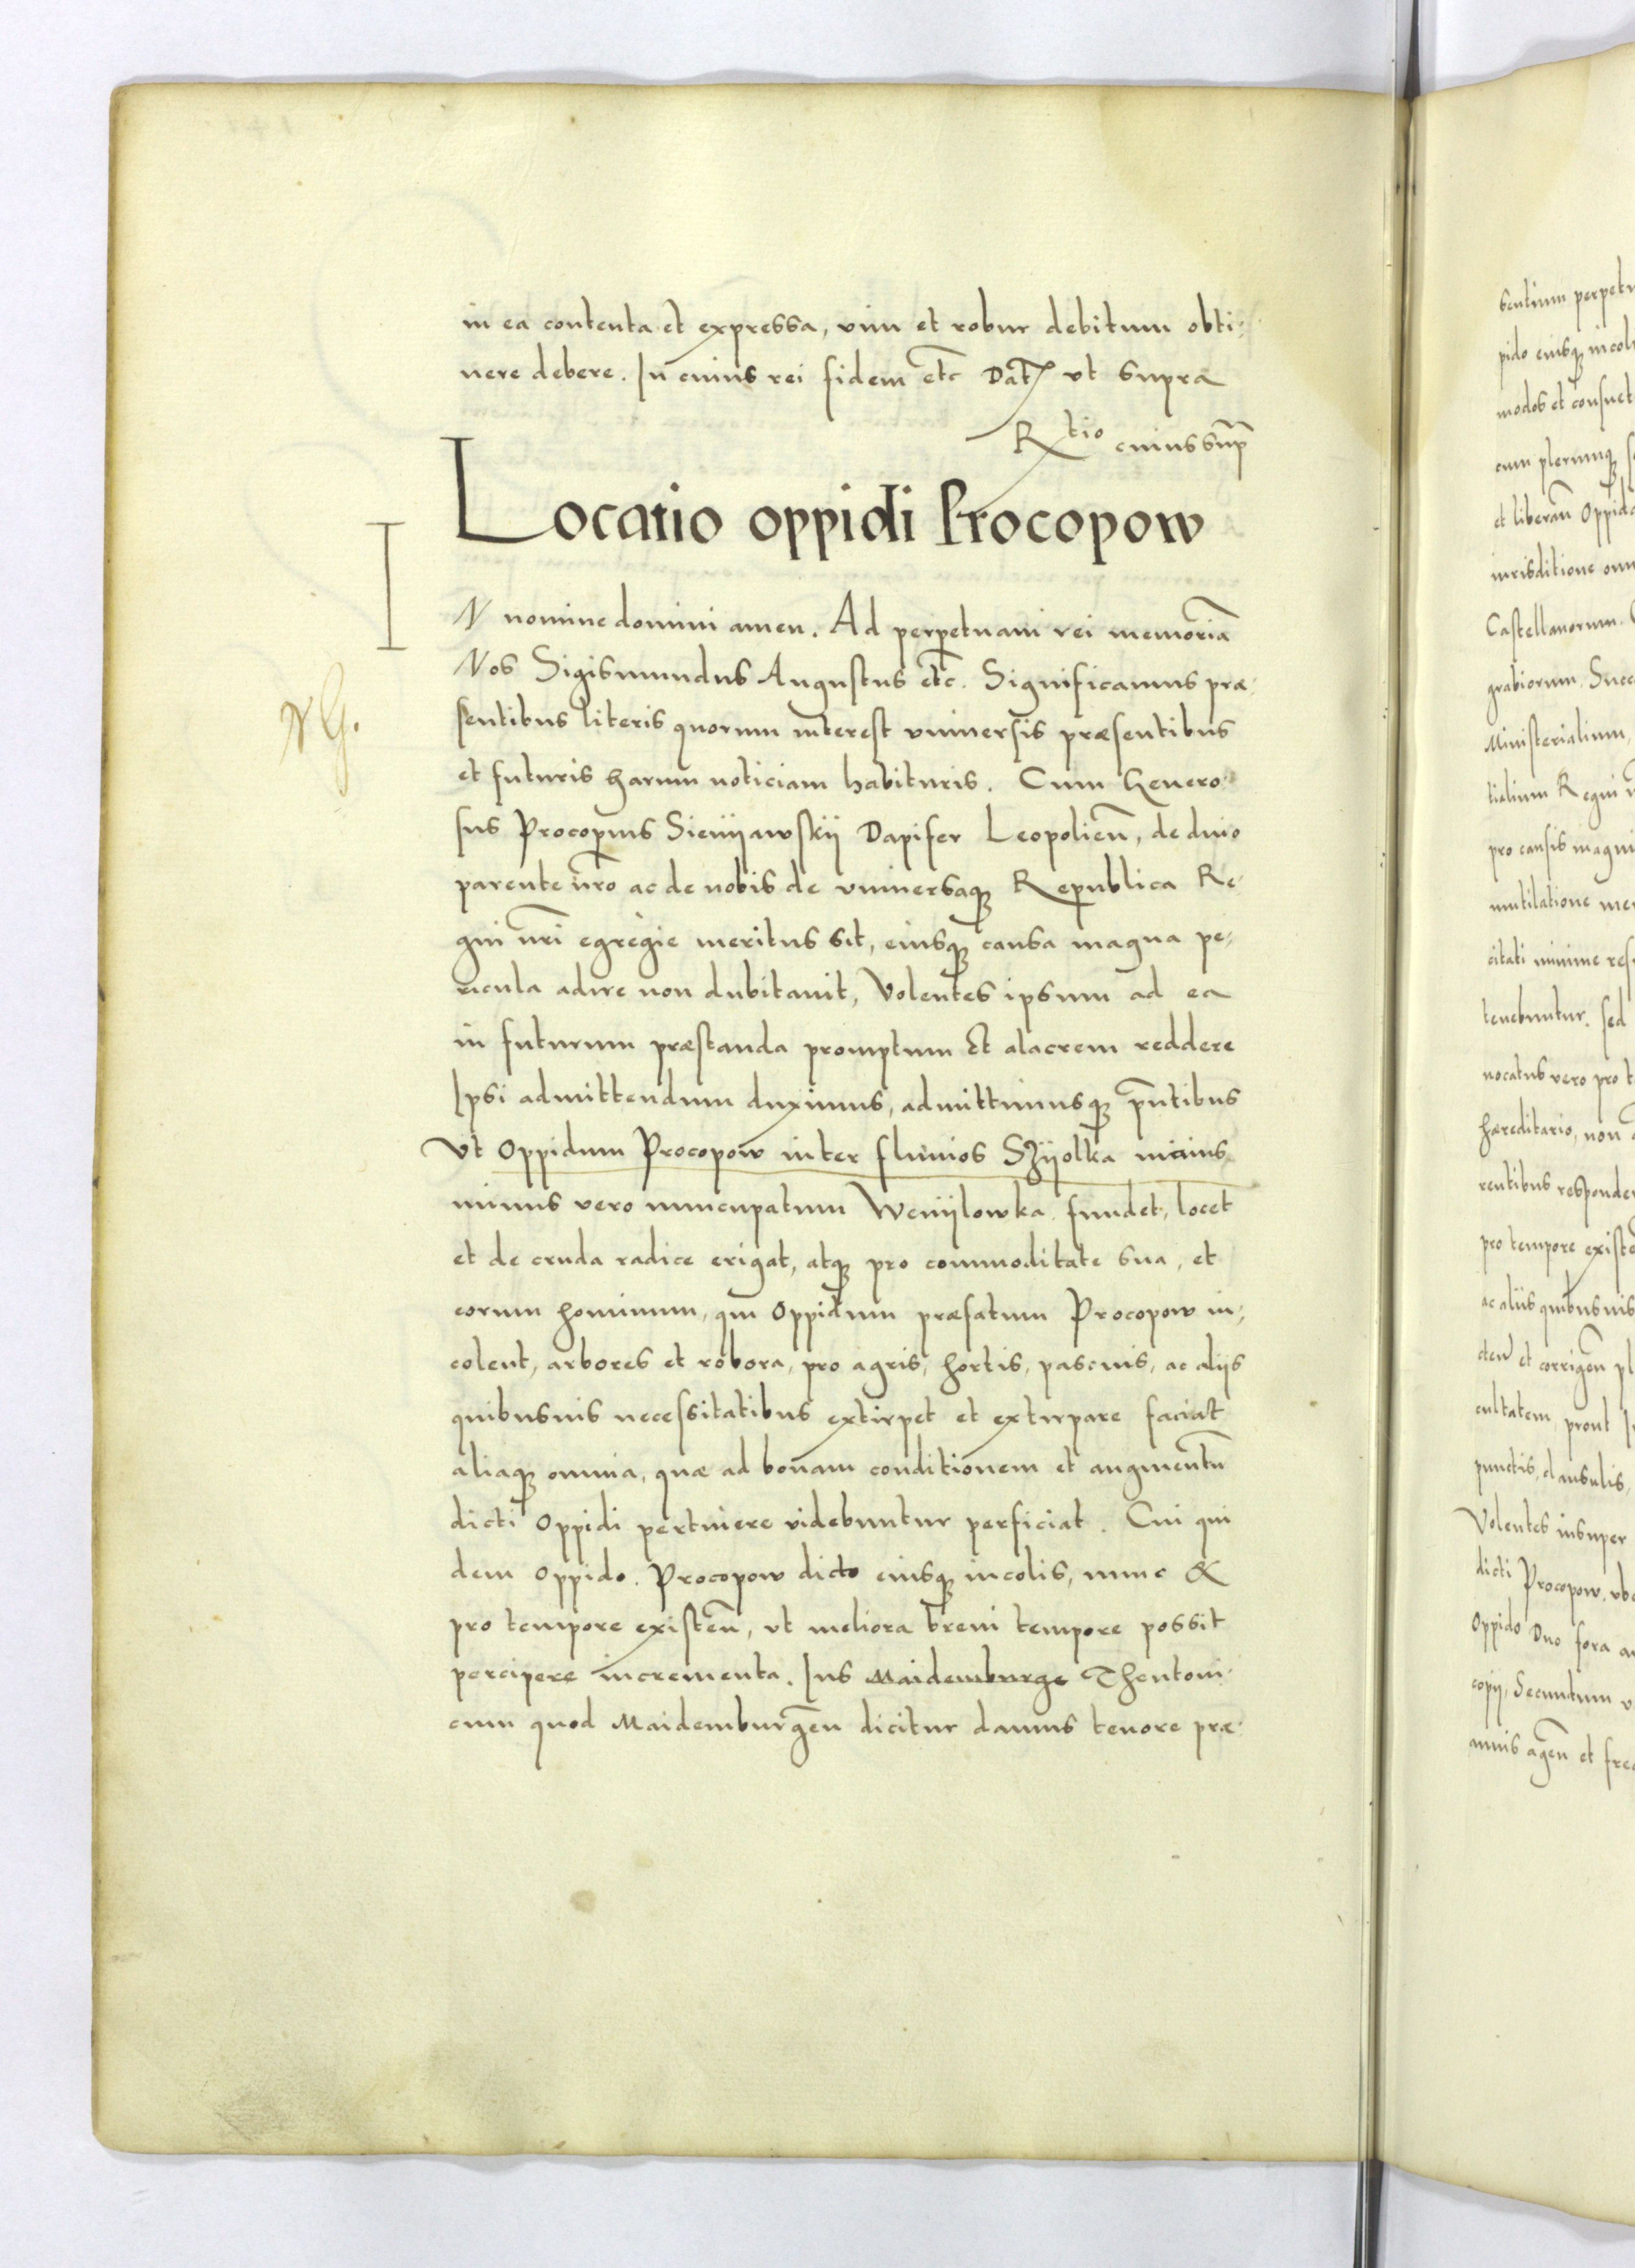 in ea contenta et expressa, vim et robur debitum obti-
nere debere. In cuius rei fidem etc̃ Dat̃ vt supra
R^tio cuius sup̃
Locatio oppidi Procopow
IN nomine domini amen. Ad perpetuam rei memoriã
NG.
Nos Sigismundus Augustus etc̃. Significamus præ-
sentibus literis quorum interest vniuersis præsentibus
et futuris harum noticiam habituris. Cum Genero-
sus Procopius Sienÿawskÿ Dapifer Leopolieñ, de diuo
parente ñro ac de nobis de vniuersaq̃ Republica Re-
gni ñri egregie meritus sit, eiusq̃ causa magna pe-
ricula adire non dubitauit, Volentes ipsum ad ea
in futurum præstanda promptum et alacrem reddere
Ipsi admittendum duximus, admittimusq̃ p̃ntibus
Vt Oppidum Procopow inter fluuios Szÿolka maius
minus vero nuncupatum Wenÿlowka fundet, locet
et de cruda radice erigat, atq̃ pro commoditate sua, et
eorum hominum, qui Oppidum præfatum Procopow in-
colent, arbores et robora, pro agris, hortis, pascuis, ac aliis
quibusuis necessitatibus extirpet et extirpare faciat
aliaq̃ omnia, quæ ad bonam conditionem et augmentũ
dicti Oppidi pertinere videbuntur perficiat. Cui qui
dem Oppido. Procopow dicto eiusq̃ incolis, nunc &
pro tempore existeñ, vt meliora breui tempore possit
percipere incrementa. Ius Maidemburge Theutoni-
cum quod Maidemburgeñ dicitur damus tenore præ-
sentium perpetu
pido eiusq̃ incol
modos et consuet
cum plerumq̃
et liberañ Oppid
iurisditione om
Castellanorum.
grabiorum. Succ
Ministerialium,
tialium Regni
pro causis magni
mutilatione me
citati minime res
tenebuntur. sed
uocatus vero pro t
hæreditario, non
rentibus responde
pro tempore existe
ac aliis quibusuis
deñ et corrigeñ pl
cultatem, prout I
punctis, clausulis,
Volentes insuper
dicti Procopow. vb
Oppido Duo fora a
copÿ, Secundum v
annis ageñ et fre